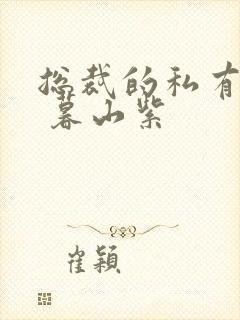 总裁的私有
暮山紫
崔颖